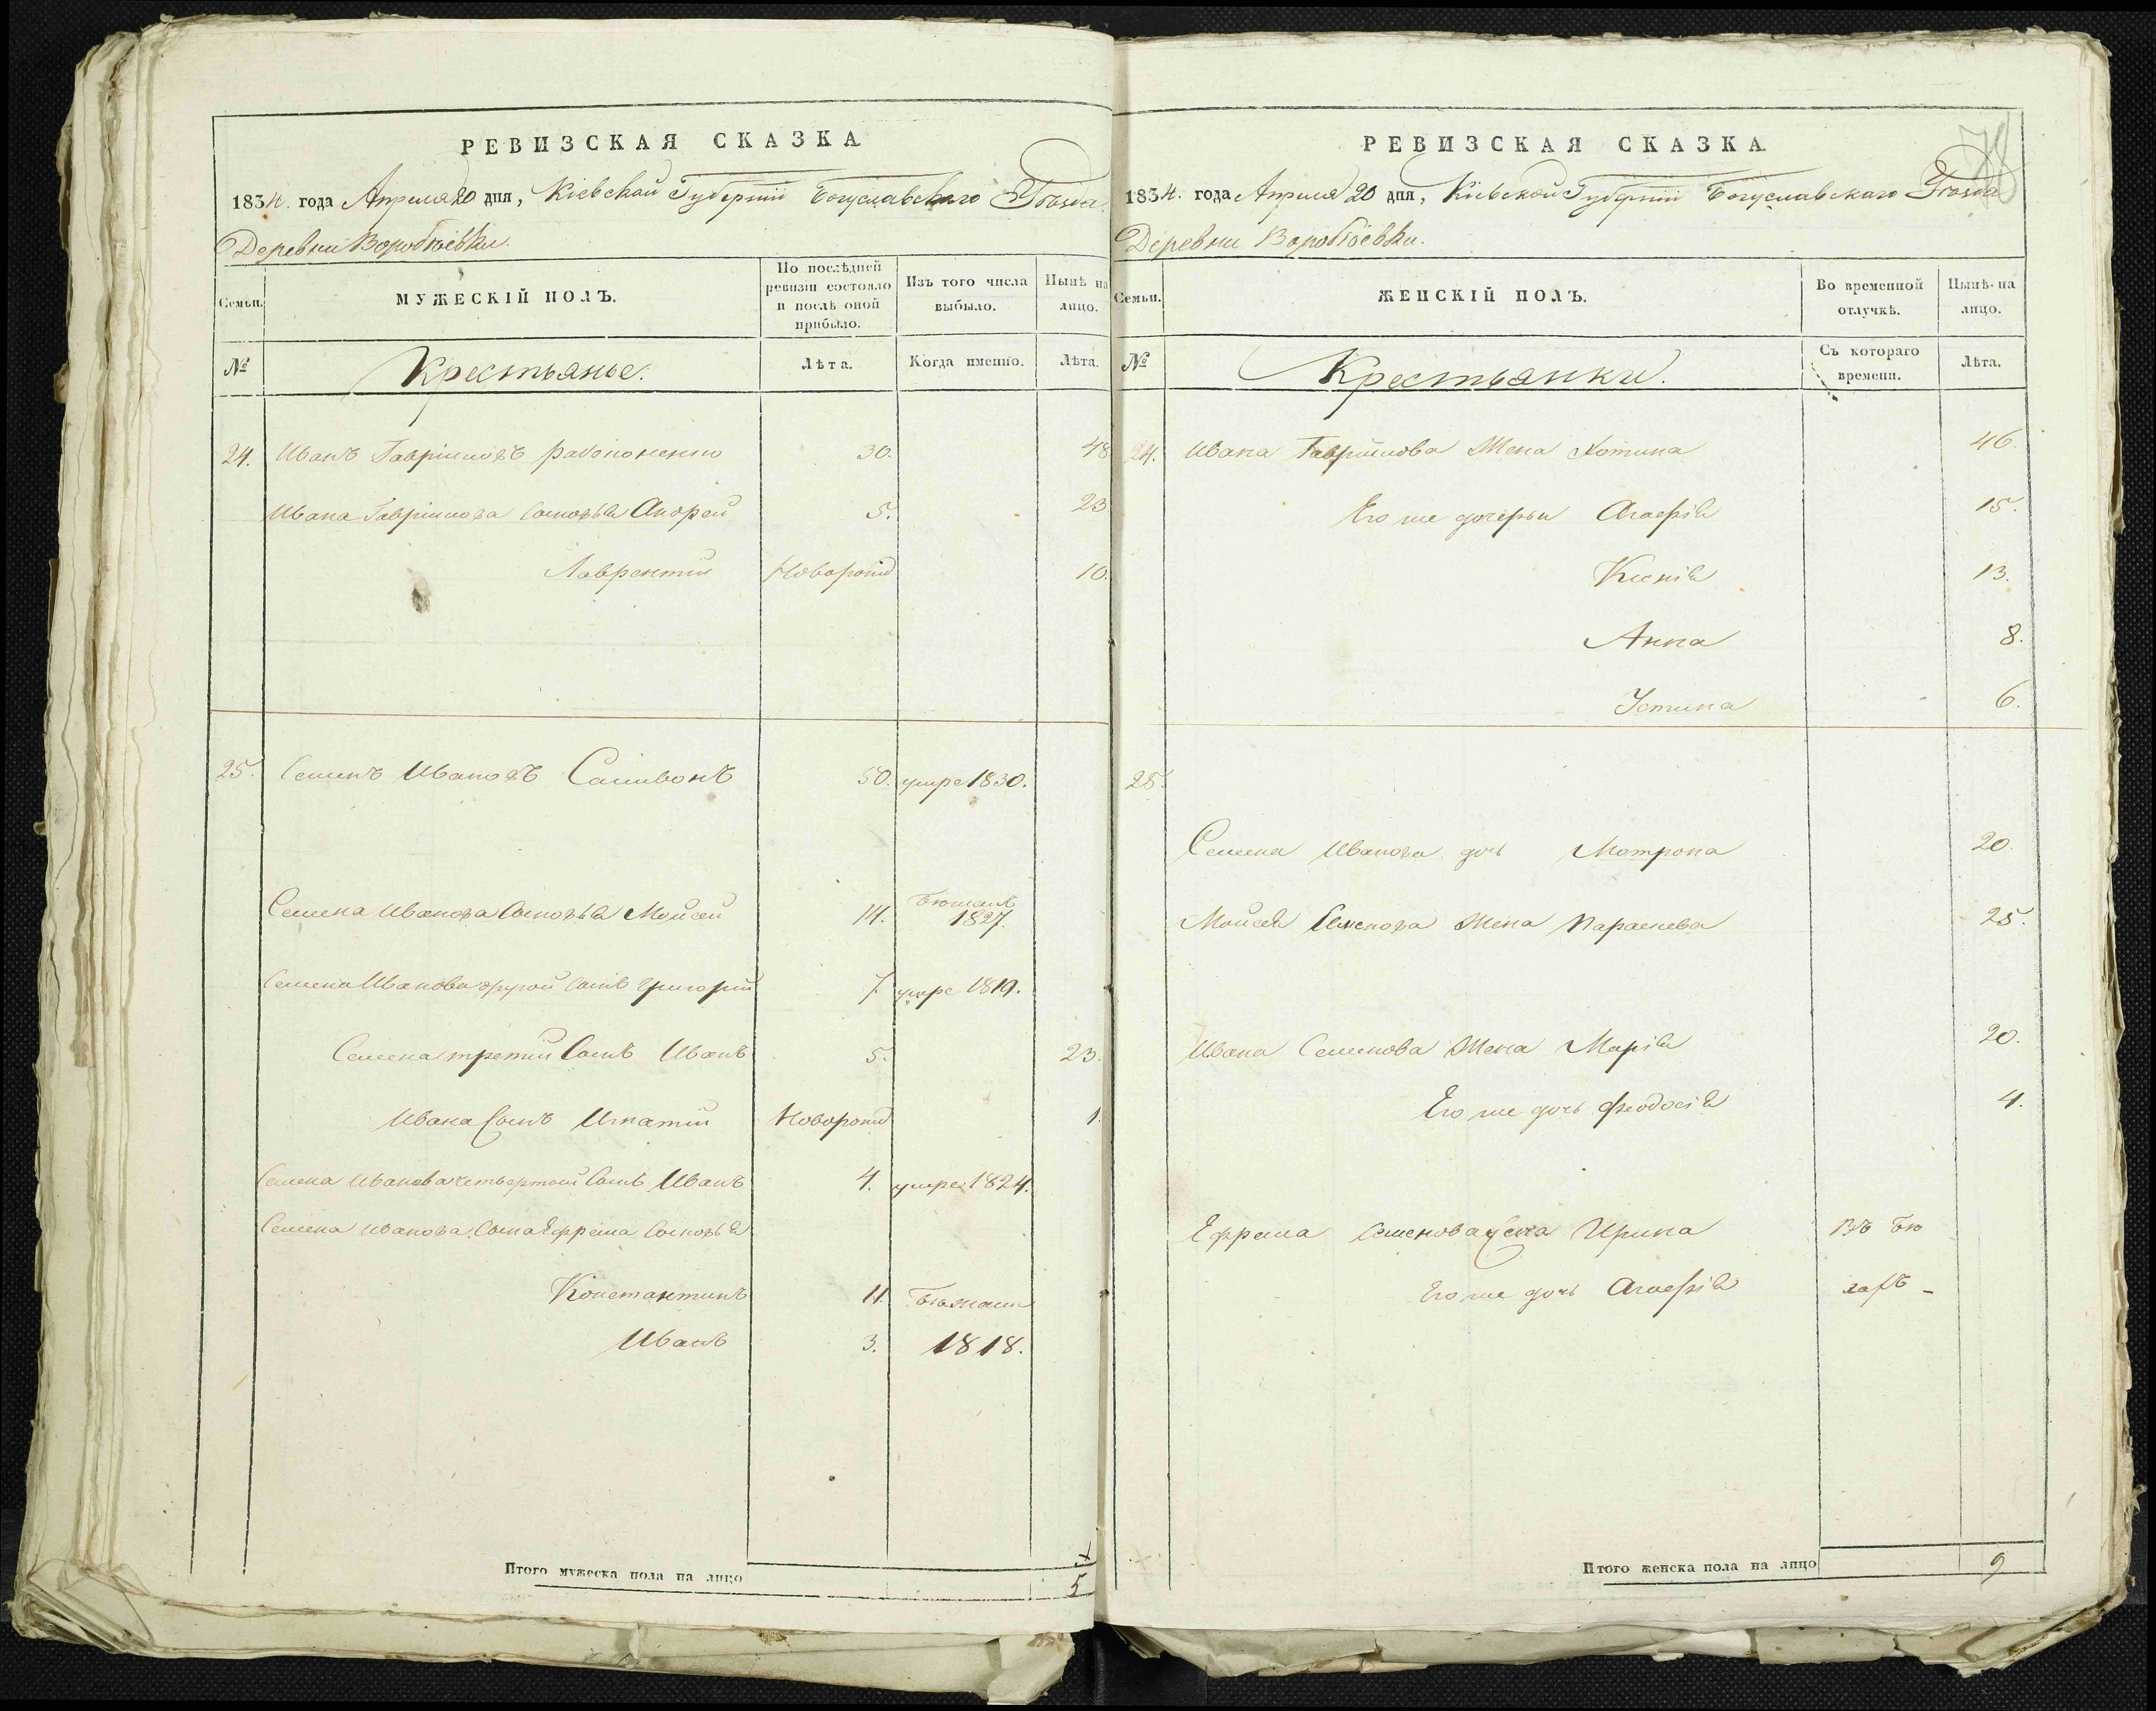 РЕВИЗСКАЯ СКАЗКА
1834. года Апреля 20 дня, Кіевской Губерніи Богуславскаго Уѣзда
Деревни Воробіовки.
Семьи.
МУЖЕСКІЙ ПОЛЪ.
По послѣдней ревизіи состояло и послѣ оной прибыло.
Изъ того числа выбыло.
Нынѣ на лицо.
№
Крестьянье.
Лѣта.
Когда именно.
Лѣта.
24. Иванъ Гавріиловъ 30. 48
Ивана Гавріилова Сыновья Андрей 5. 23
Лаврентий Новорожд 10.
25. Семенъ Ивановъ Саливонъ 50. умре 1830.
Семена Иванова Сыновья Мойсей 14. бежалъ 1827.
Семена Иванова другой Сынъ Григорий 7. умре 1819.
Семена третий Сынъ Иванъ 5. 23.
Ивана Сынъ Игнатий Новорожд 1.
Семена Иванова четвертой Сынъ Иванъ 4. умре 1824.
Семена Иванова Сына Ефрема Сыновья
Константинъ 11. Бежали
Иванъ 3. 1818.
Итого мужеска пола на лицо 5
РЕВИЗСКАЯ СКАЗКА
78
1834. года Апреля 20 дня, Кіевской Губерніи Богуславскаго Уѣзда
Деревни Воробіовки.
Семьи.
ЖЕНСКІЙ ПОЛЪ.
Во временной отлучкѣ.
Нынѣ на лицо.
№
Крестьянки.
Съ котораго времени.
Лѣта.
24. Ивана Гавріилова Жена Хотина 46.
Его же дочерьи Агафія 15.
Ксенія 13.
Анна 8.
Устина 6.
25.
Семена Иванова дочь Мотрона 20.
Мойсея Семенова Жена Параскева 25.
Ивана Семенова Жена Марія 20.
Его же дочь Феодосія 4.
Ефрема Семенова Жена Ирина Въ бѣ
Его же дочь Агафія гахъ -
Итого женска пола на лицо 9